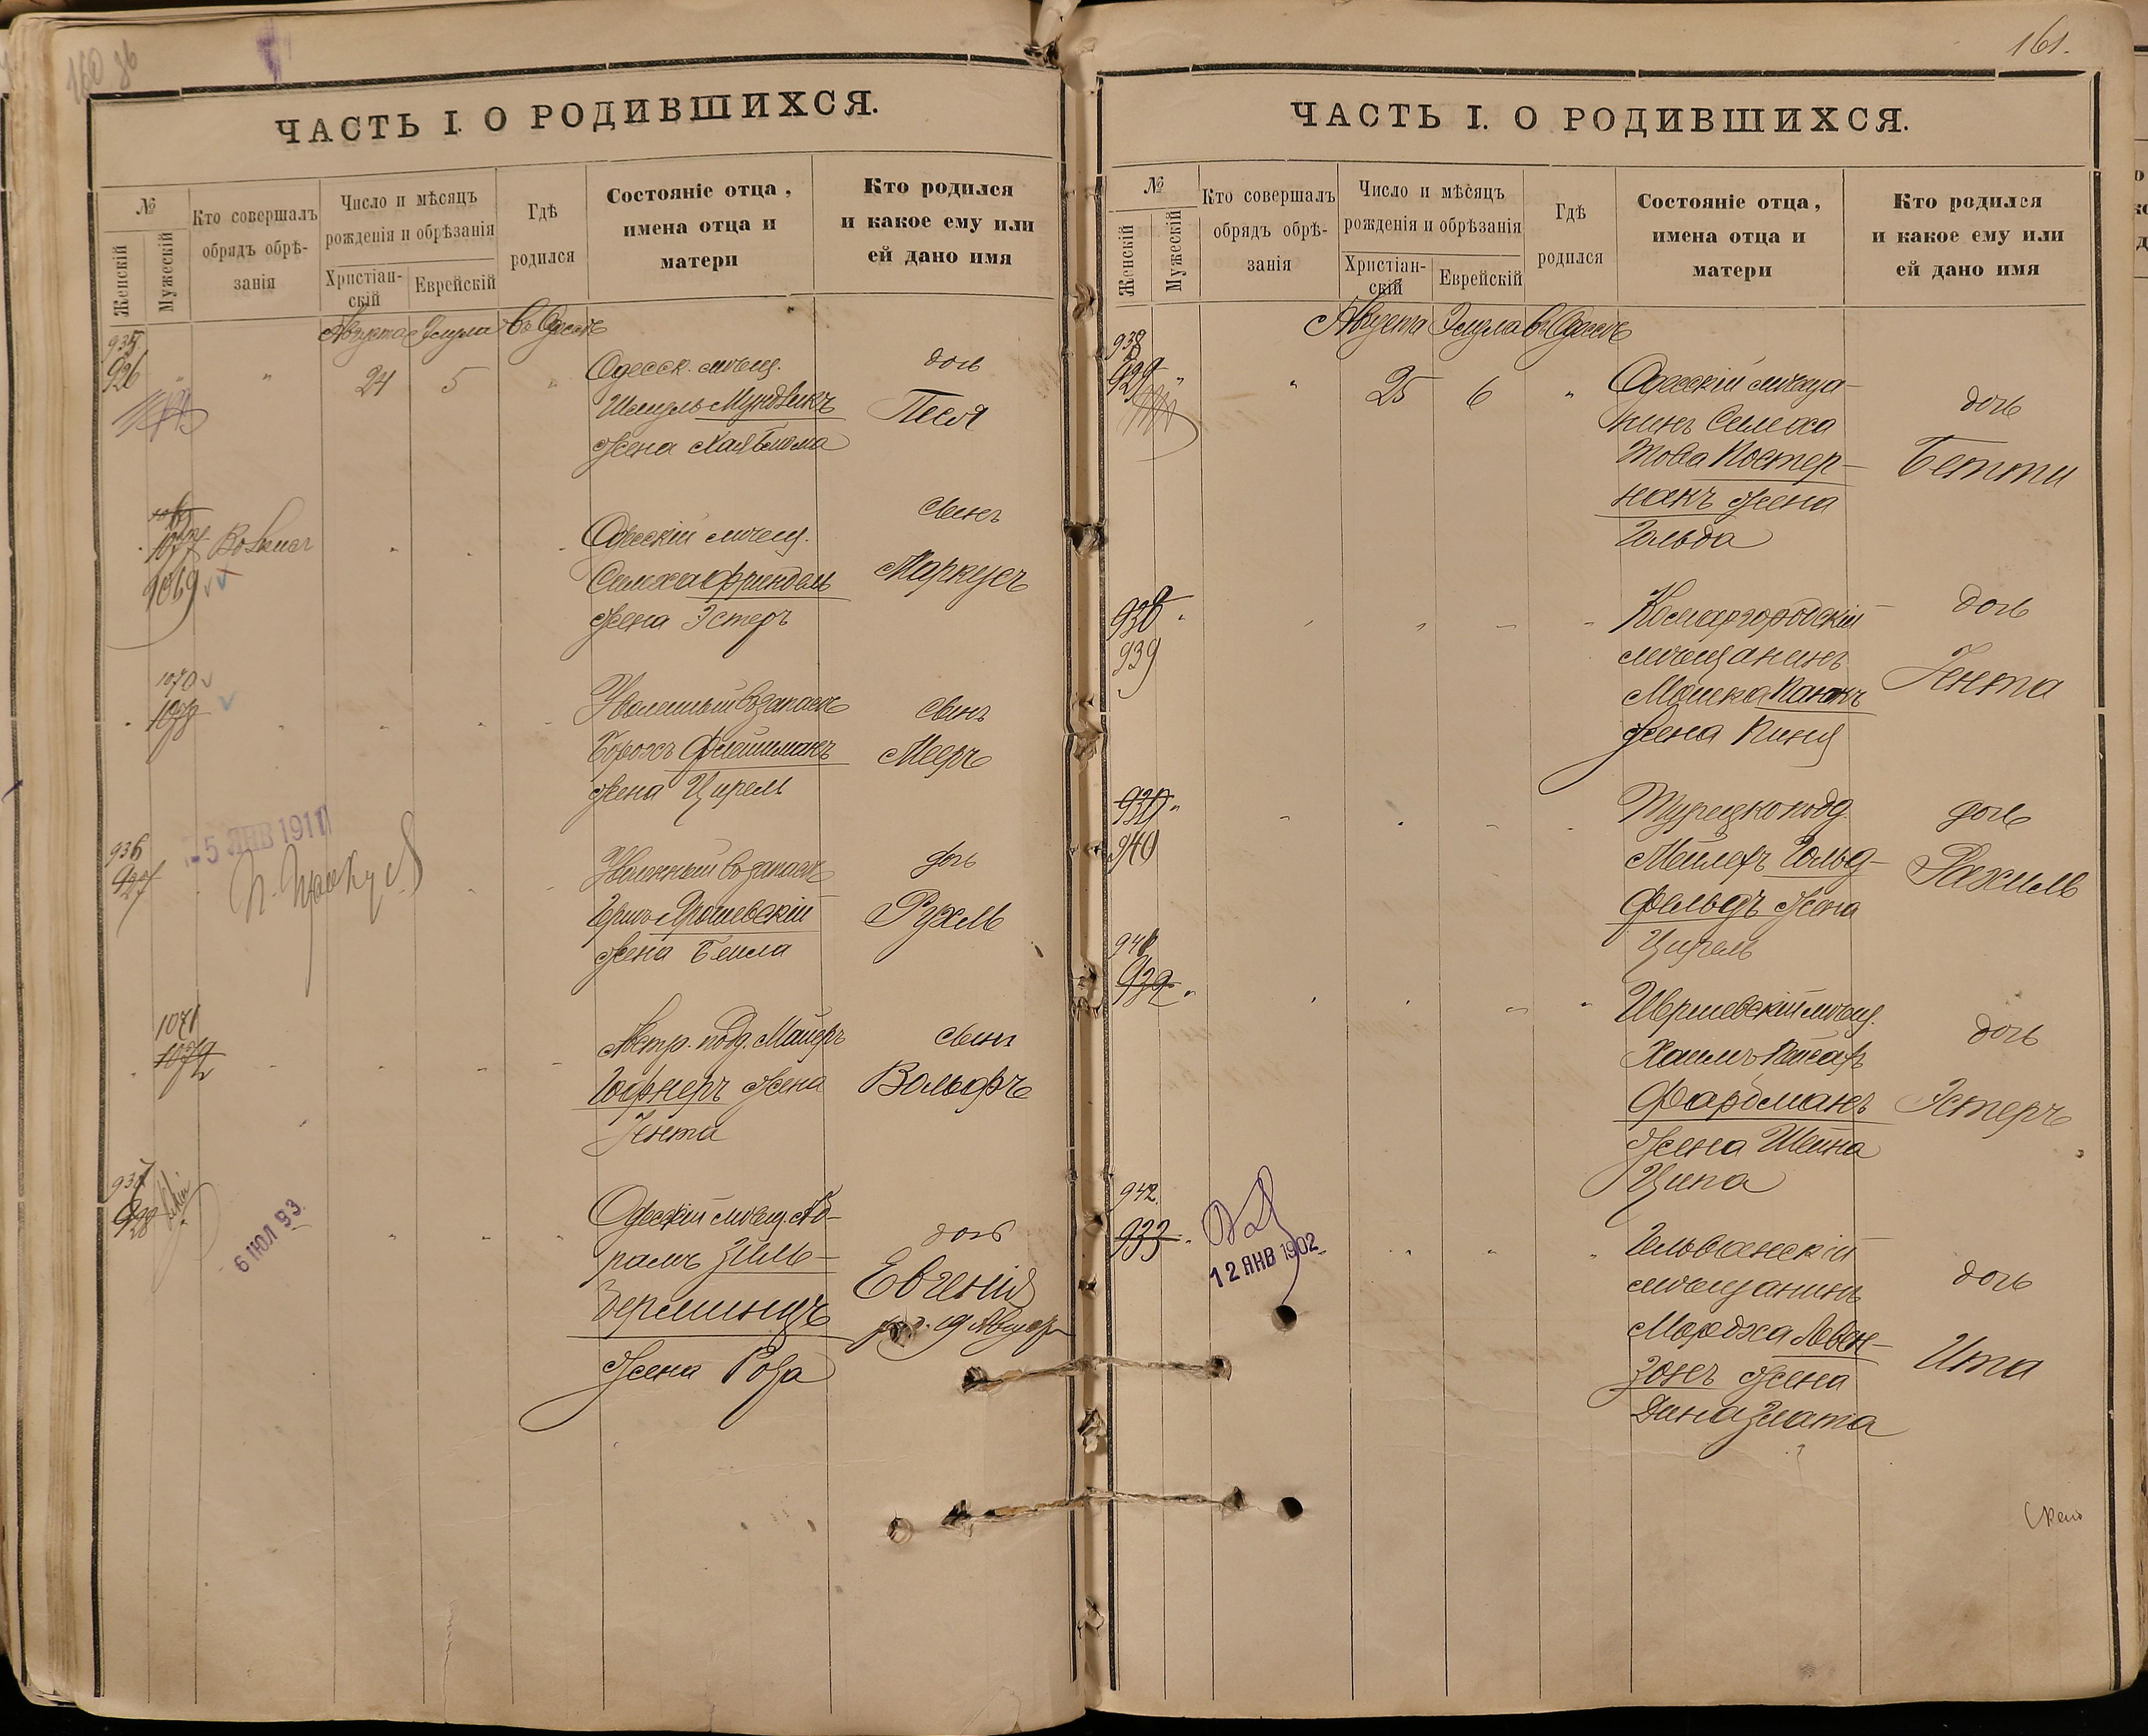 160 об
ЧАСТЬ I. О РОДИВШИХСЯ.
№
Женскій
Мужескій
Кто совершалъ
обрядъ обрѣ-
занія
Число и мѣсяцъ
рожденія и обрѣзанія
Христіан-
скій
Еврейскій
Гдѣ
родился
Состояніе отца,
имена отца и
матери
Кто родился
и какое ему или
ей дано имя
Августа Элула въ Одессѣ
935
926 " " 24 5 "
Одесск. мѣщ.
Шмуль
жена Хая Блюма
дочь
Песя
1077
1069
Одесскій мѣщ.
Симха Френдель
жена Эстеръ
сынъ
Маркусъ
1070
1078
Уволенный въ запасъ
Борохъ Флейшманъ
жена Цирель
сынъ
Мееръ
5 ЯНВ 1911
936
927
Уволенный въ запасъ
Гершъ Ярошевскій
жена Бейла
дочь
Рухль
1071
1079
Австр. подд. Майеръ
Гофнеръ жена
Іента
сынъ
Вольфъ
937
928
6 ІЮЛ 93.
Одесскій мѣщ. Аб-
рамъ Зиль-
берминцъ
жена Роза
дочь
Евгенія
19 Август
161.
ЧАСТЬ I. О РОДИВШИХСЯ.
№
Женскій
Мужескій
Кто совершалъ
обрядъ обрѣ-
занія
Число и мѣсяцъ
рожденія и обрѣзанія
Христіан-
скій
Еврейскій
Гдѣ
родился
Состояніе отца,
имена отца и
матери
Кто родился
и какое ему или
ей дано имя
Августа Элула въ Одессѣ
938
929 " " 25 6 "
Одесскій мѣща-
нинъ Симха
Това Постер-
накъ жена
Гольда
дочь
Бетти
939
Комаргородскій
мѣщанинъ
Мошка
жена Пиня
дочь
Іента
940
Турецкоподд.
Мейлехъ Гольд-
фельдъ жена
Цирель
дочь
Рахиль
941
932
мѣщ.
Хаимъ Пейсахъ
Фарбманъ
жена Шейна
Ципа
дочь
Эстеръ
942.
933
12 ЯНВ 1902
мѣщанинъ
Мордха Левен-
зонъ жена
Дина Злата
дочь
Ита